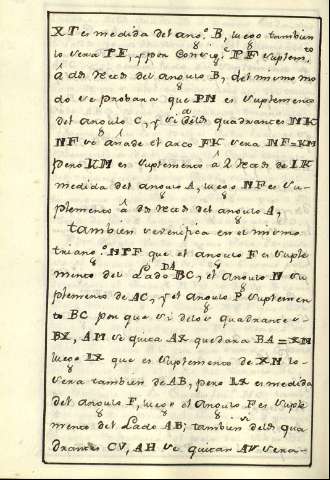 XT es medida del ang.º B, luego tambien
lo sera PF, y por consig.e PF suplem.to
â dos rectos del angulo B, del mismo mo
do se probara que PN es suplemento
del angulo C, y si â los quadrantes MK
NF se añade el arco FK sera NF=KM
pero KM es suplemento â 2 rectos de IK
medida del angulo A, luego NF es su-
plemento â dos rectos del angulo A,
tambien se verifica en el mismo
triang.º NPF que el angulo F es suple
mento del Lado BC, el angulo N su
plemento de AC, y el angulo P suplemen
to BC por que si delos quadrantes
BX, AM se quita AX quedara BA=XM
luego IX que es suplemento de XM lo-
sera tambien de AB, pero IX es medida
del angulo F, luego el angulo F es suple
mento del Lado AB; tambien si delos qua
drantes CV, AH se quitan AV sera-